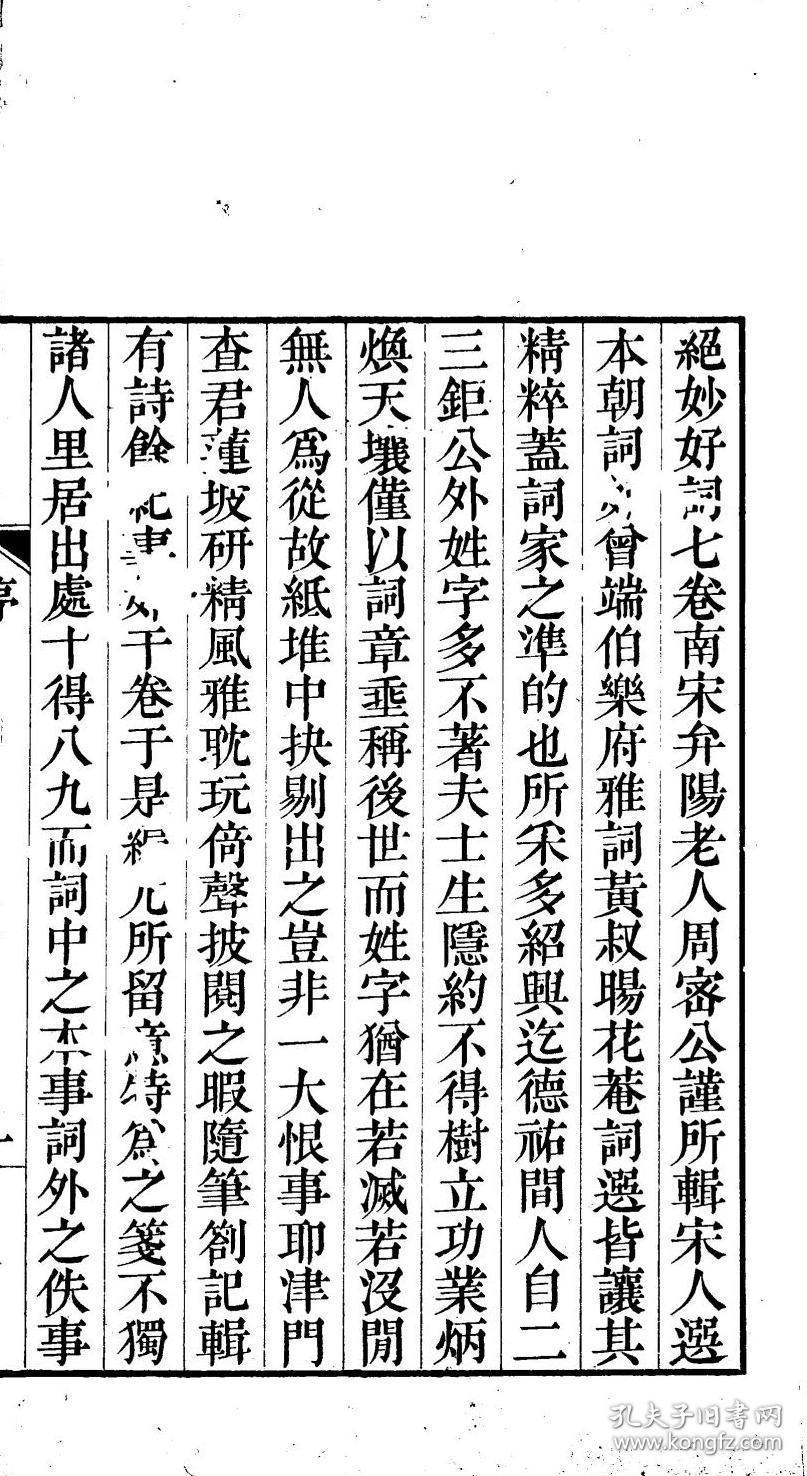 絕妙好詞七卷南宋弁陽老人周密公謹所輯宋人選
本朝詞曾端伯樂府雅詞黃叔暘花菴詞選皆讓其
精粹蓋詞家之準的也所釆多紹興迄德祐間人自二
三鉅公外姓字多不著夫士生隱約不得樹立功業炳
煥天壤僅以詞章垂稱後世而姓字猶在若滅若沒閒
無人爲從故紙堆中抉剔出之豈非一大恨事耶津門
查君蓮坡研精風雅耽玩倚聲披閱之暇隨筆劄記輯
有詩餘紀事干卷于是所留意特爲之箋不獨
諸人里居出處十得八九而詞中之本事詞外之佚事
序
一
孔夫子旧书网
www.kongfz.com